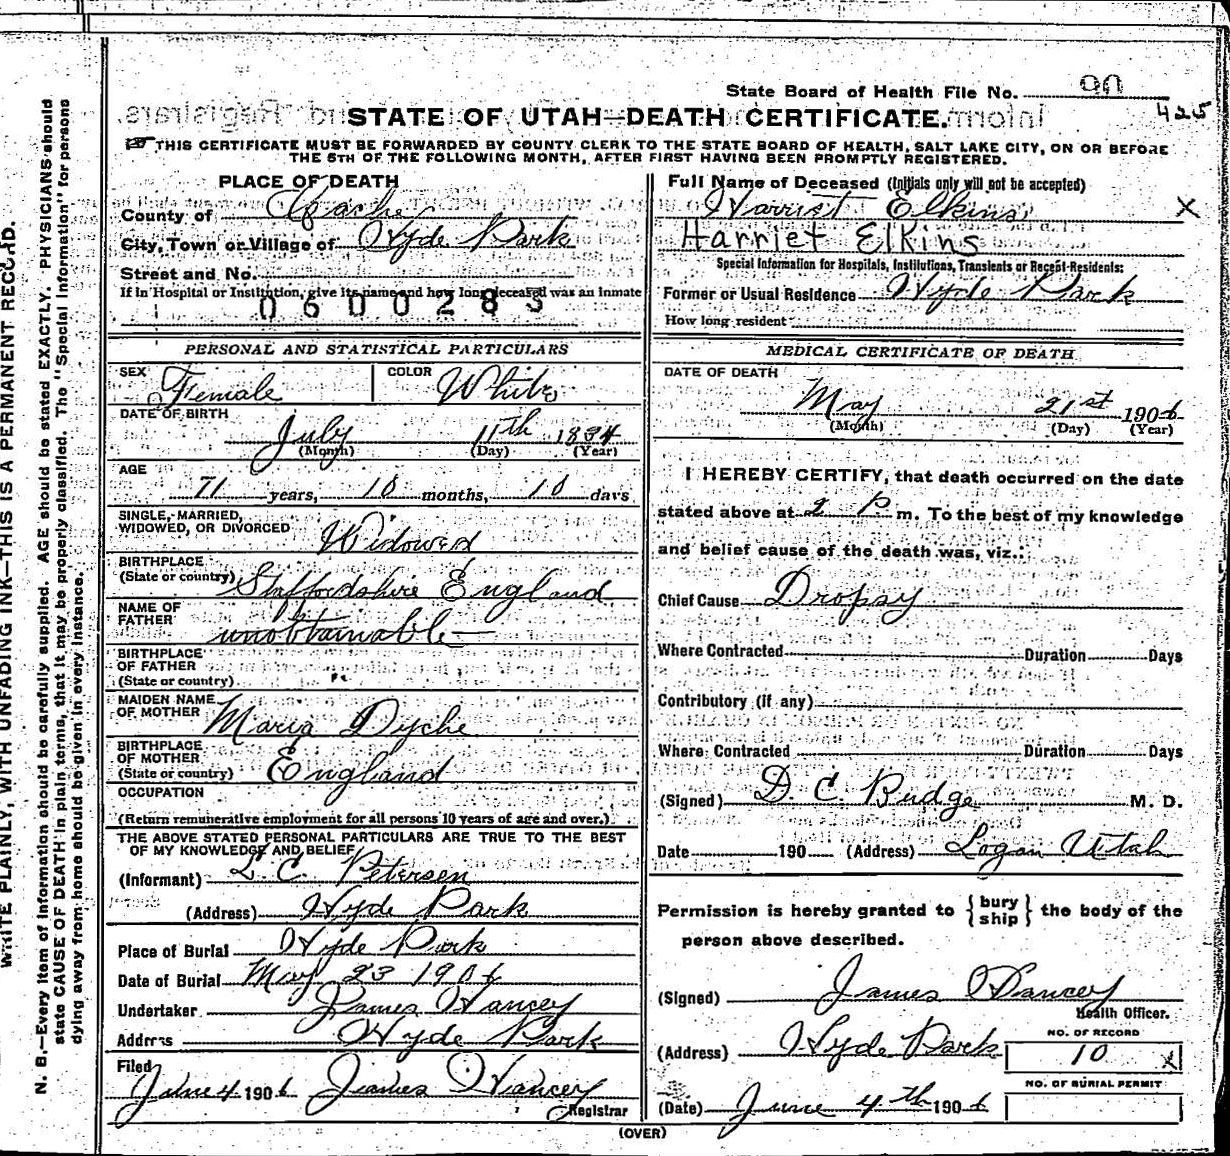 State Board of Health File No. 90
425
STATE OF UTAH—DEATH CERTIFICATE.
THIS CERTIFICATE MUST BE FORWARDED BY COUNTY CLERK TO THE STATE BOARD OF HEALTH, SALT LAKE CITY, ON OR BEFORE
THE 5TH OF THE FOLLOWING MONTH, AFTER FIRST HAVING BEEN PROMPTLY REGISTERED.
PLACE OF DEATH
County of Cache
City, Town or Village of Hyde Park
Street and No.
If in Hospital or Institution, give its name and how long deceased was an inmate
0600283
PERSONAL AND STATISTICAL PARTICULARS
SEX Female COLOR White
DATE OF BIRTH
July 11th 1834
(Month) (Day) (Year)
AGE
71 years, 10 months, 10 days
SINGLE, MARRIED,
WIDOWED, OR DIVORCED Widowed
BIRTHPLACE
(State or country) Staffordshire England
NAME OF
FATHER unobtainable
BIRTHPLACE
OF FATHER
(State or country)
MAIDEN NAME
OF MOTHER Maria Dyche
BIRTHPLACE
OF MOTHER
(State or country) England
OCCUPATION
(Return remunerative employment for all persons 10 years of age and over.)
THE ABOVE STATED PERSONAL PARTICULARS ARE TRUE TO THE BEST
OF MY KNOWLEDGE AND BELIEF
(Informant) L. C. Petersen
(Address) Hyde Park
Place of Burial Hyde Park
Date of Burial May 23 1906
Undertaker James Hancey
Address Hyde Park
Filed
June 4 1906 James Hancey
Registrar
Full Name of Deceased (Initials only will not be accepted)
Harriet Elkins X
Harriet Elkins
Special Information for Hospitals, Institutions, Transients or Recent Residents:
Former or Usual Residence Hyde Park
How long resident
MEDICAL CERTIFICATE OF DEATH
DATE OF DEATH
May 21st 1906
(Month) (Day) (Year)
I HEREBY CERTIFY, that death occurred on the date
stated above at 2 P m. To the best of my knowledge
and belief cause of the death was, viz.:
Chief Cause Dropsy
Where Contracted Duration Days
Contributory (if any)
Where Contracted Duration Days
(Signed) D. C. Budge M. D.
Date 190 (Address) Logan Utah
Permission is hereby granted to { bury
ship } the body of the
person above described.
(Signed) James Hancey
Health Officer.
(Address) Hyde Park
NO. OF RECORD
10 X
NO. OF BURIAL PERMIT
(Date) June 4th 1906
(OVER)
WRITE PLAINLY, WITH UNFADING INK—THIS IS A PERMANENT RECORD.
N. B.—Every item of information should be carefully supplied. AGE should be stated EXACTLY. PHYSICIANS should
state CAUSE OF DEATH in plain terms, that it may be properly classified. The "Special Information" for persons
dying away from home should be given in every instance.